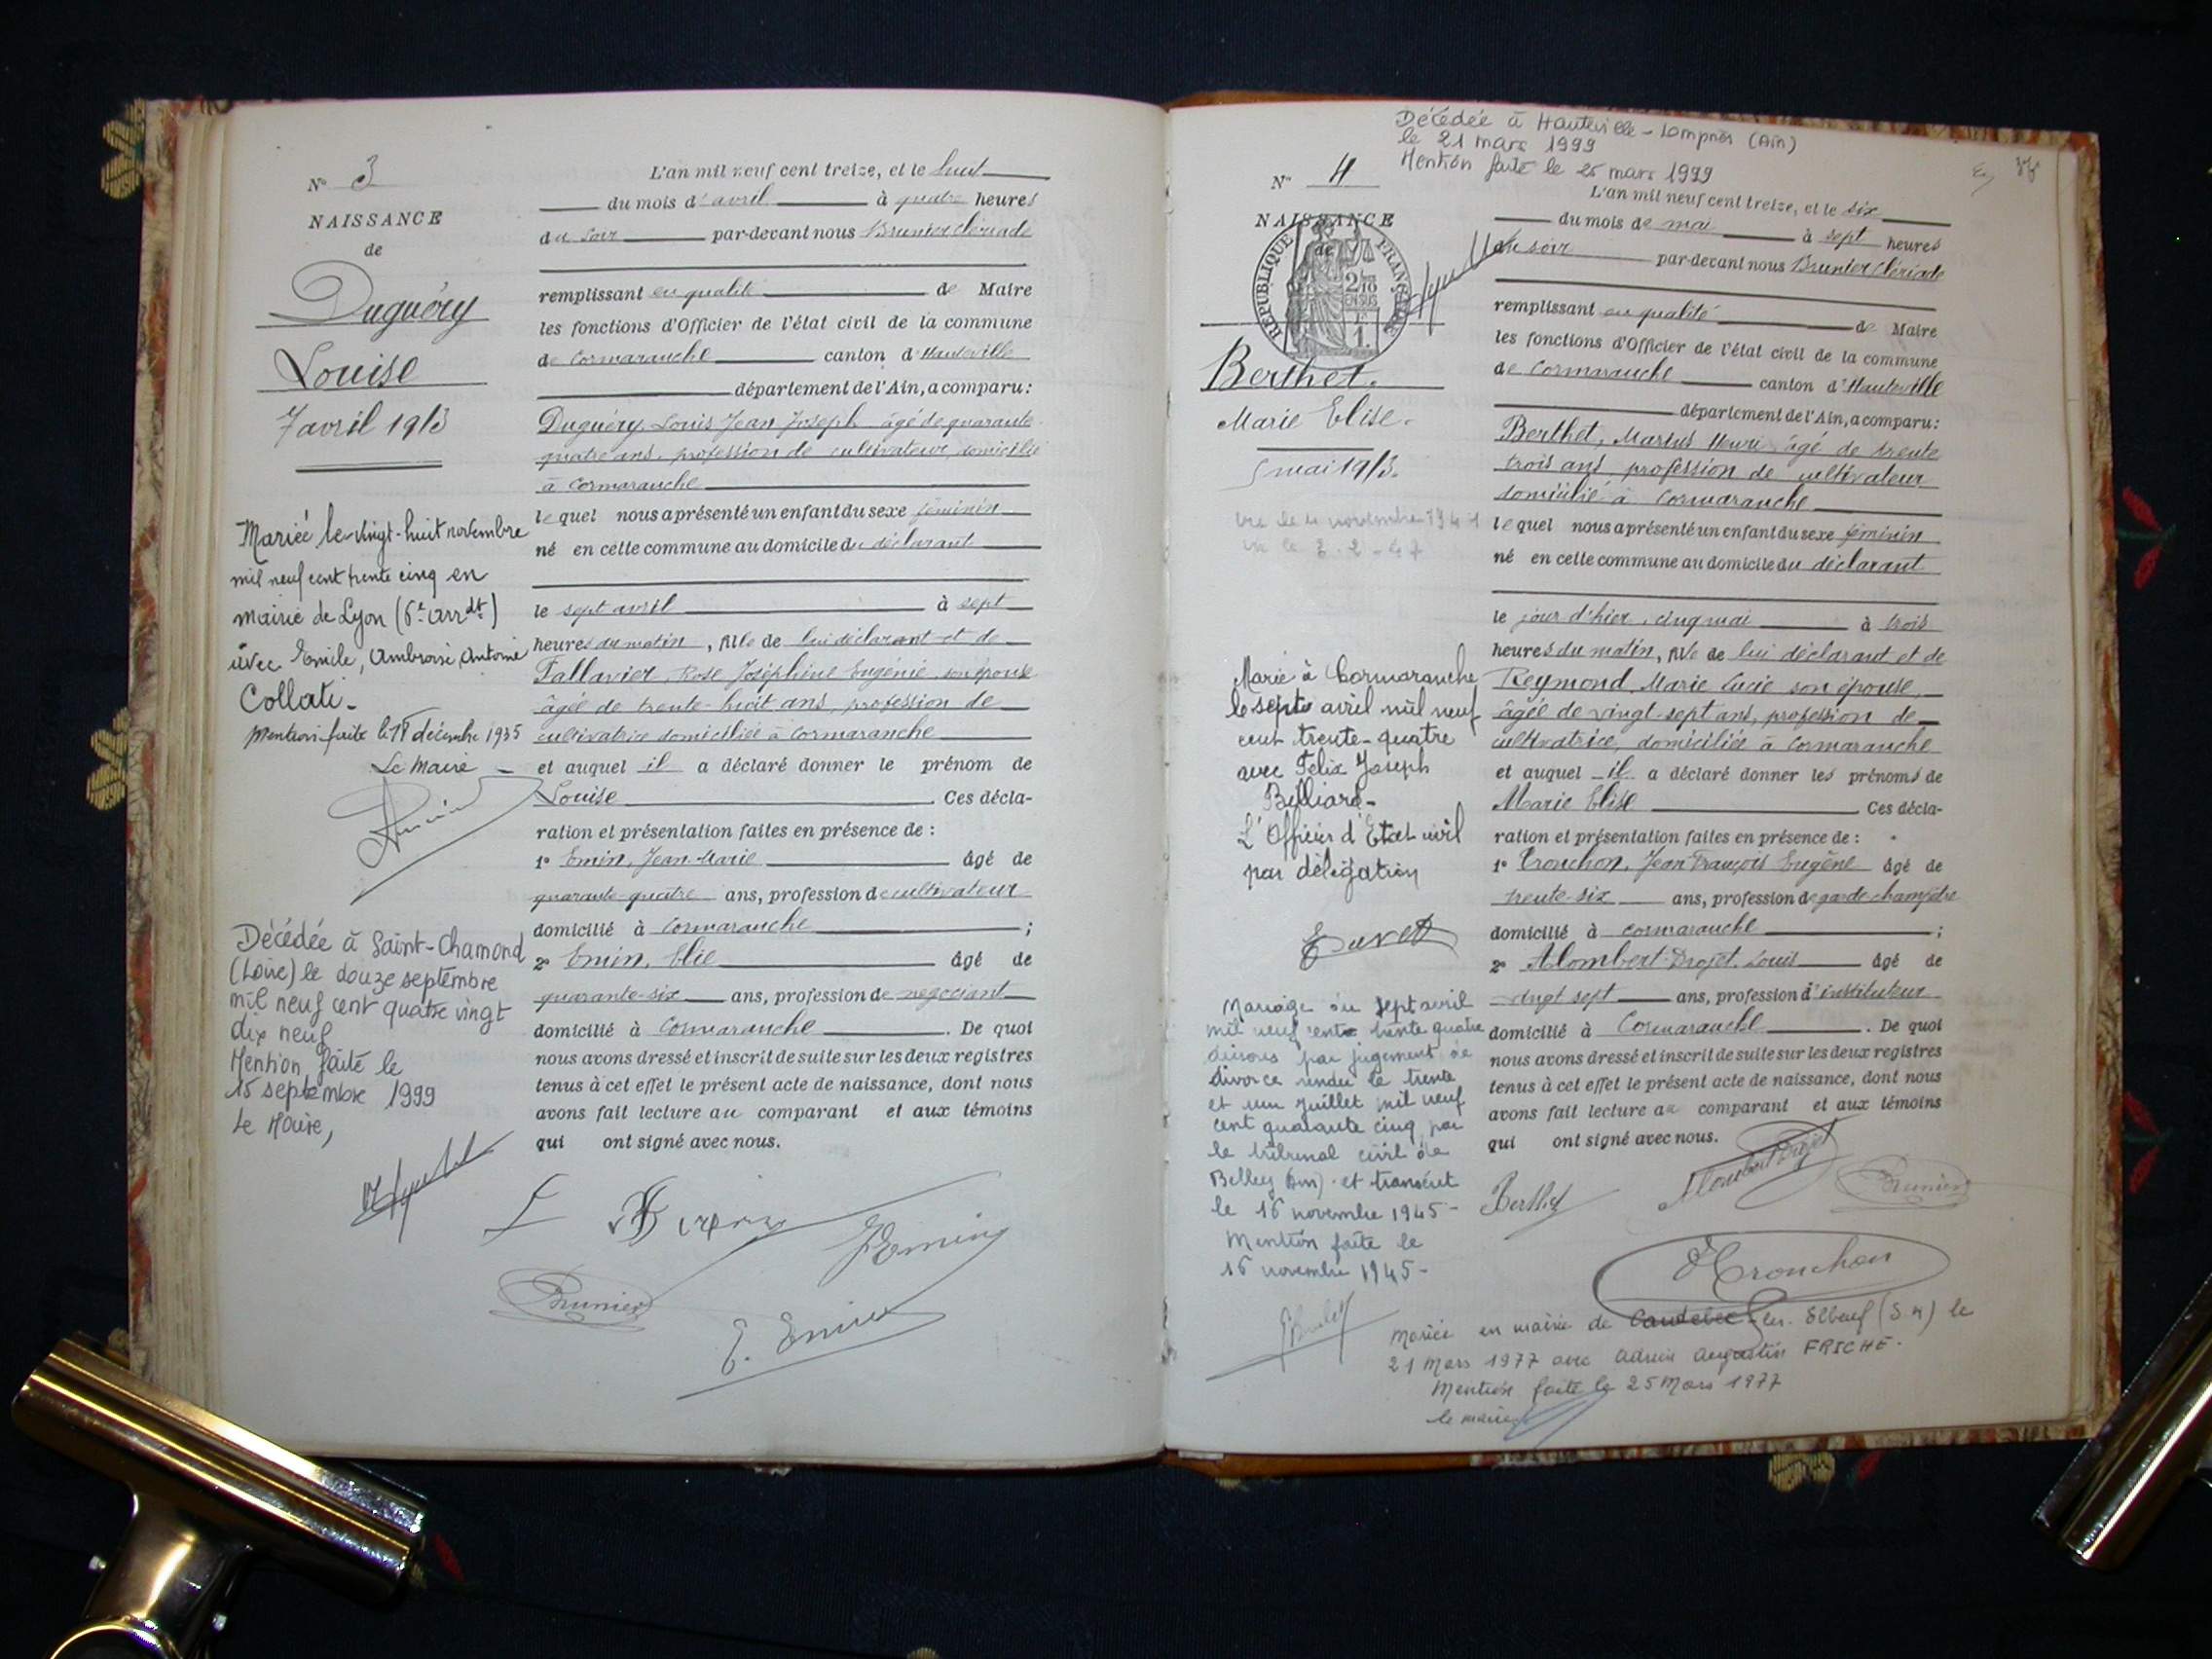 N° 3
NAISSANCE
de
Duguéry
Louise
7 avril 1913
Mariée le vingt-huit novembre
mil neuf cent trente cinq en
mairie de Lyon (6e arrdt)
avec Emile, Ambroise, Antoine
Collati
Mention faite le décembre 1935
Le Maire
Décédée à Saint-Chamond
(Loire) le douze septembre
mil neuf cent quatre vingt
dix neuf
Mention faite le
15 septembre 1999
Le Maire,
L'an mil neuf cent treize, et le huit
du mois d'avril à quatre heures
du soir par-devant nous Brunier Clériade
remplissant en qualité de Maire
les fonctions d'Officier de l'état civil de la commune
de Cormaranche canton d'Hauteville
département de l'Ain, a comparu :
Duguéry, Louis Jean Joseph âgé de quarante
quatre ans, profession de cultivateur, domicilié
à Cormaranche
lequel nous a présenté un enfant du sexe féminin
né en cette commune au domicile du déclarant
le sept avril à sept
heures du matin, fille de lui déclarant et de
Tallavier, Rose Joséphine Eugénie, son épouse
âgée de trente-huit ans, profession de
cultivatrice domiciliée à Cormaranche
et auquel il a déclaré donner le prénom de
Louise. Ces décla-
ration et présentation faites en présence de :
1° Emin, Jean-Marie âgé de
quarante-quatre ans, profession de cultivateur
domicilié à Cormaranche ;
2° Emin, Elie âgé de
quarante-six ans, profession de négociant
domicilié à Cormaranche. De quoi
nous avons dressé et inscrit de suite sur les deux registres
tenus à cet effet le présent acte de naissance, dont nous
avons fait lecture au comparant et aux témoins
qui ont signé avec nous.
Brunier
E. Emin
Décédée à Hauteville-Lompnes (Ain)
le 21 mars 1999
Mention faite le 25 mars 1999
N° 4
NAISSANCE
de
RÉPUBLIQUE FRANÇAISE
Berthet.
Marie Elise.
5 mai 1913.
Marié à Cormaranche
le sept avril mil neuf
cent trente-quatre
avec Felix Joseph
Billiard
L'Officier d'Etat civil
par délégation
Mariage du sept avril
mil neuf cent trente quatre
dissous par jugement de
divorce rendu le trente
et un juillet mil neuf
cent quarante cinq par
le tribunal civil de
Belley (Ain) et transcrit
le 16 novembre 1945-
Mention faite le
16 novembre 1945-
L'an mil neuf cent treize, et le six
du mois de mai à sept heures
du soir par-devant nous Brunier Clériade
remplissant en qualité de Maire
les fonctions d'Officier de l'état civil de la commune
de Cormaranche canton d'Hauteville
département de l'Ain, a comparu :
Berthet, Marius Henri âgé de trente
trois ans, profession de cultivateur
domicilié à Cormaranche
lequel nous a présenté un enfant du sexe féminin
né en cette commune au domicile du déclarant
le jour d'hier, cinq mai à trois
heures du matin, fille de lui déclarant et de
Reymond, Marie Lucie son épouse,
âgée de vingt-sept ans, profession de
cultivatrice, domiciliée à Cormaranche
et auquel il a déclaré donner les prénoms de
Marie Elise. Ces décla-
ration et présentation faites en présence de :
1° Tronchon, Jean François Eugène âgé de
trente-six ans, profession de garde champêtre
domicilié à Cormaranche ;
2° Alombert-Drojet, Louis âgé de
vingt sept ans, profession d'instituteur
domicilié à Cormaranche. De quoi
nous avons dressé et inscrit de suite sur les deux registres
tenus à cet effet le présent acte de naissance, dont nous
avons fait lecture au comparant et aux témoins
qui ont signé avec nous.
Berthet
Brunier
Tronchon
Mariée en mairie de Caudebec-les-Elbeuf (S.M) le
21 Mars 1977 avec Adrien Augustin FRICHE.
Mention faite le 25 Mars 1977
le maire